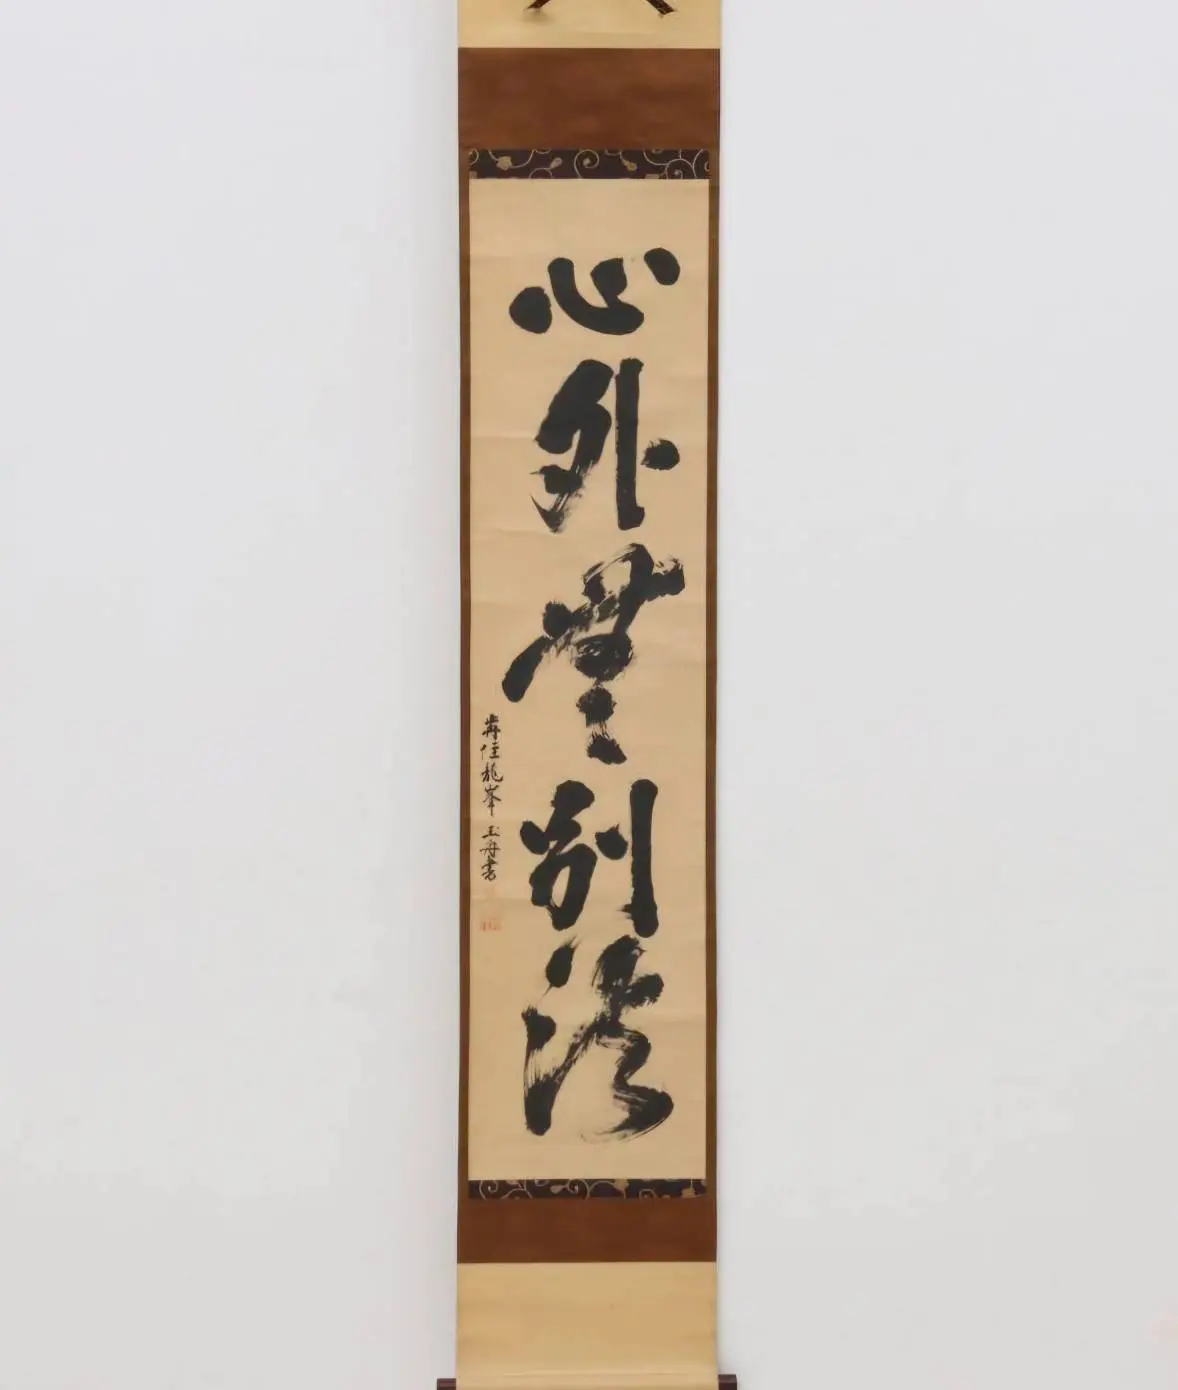 心外無別法
再住龍峯玉舟書